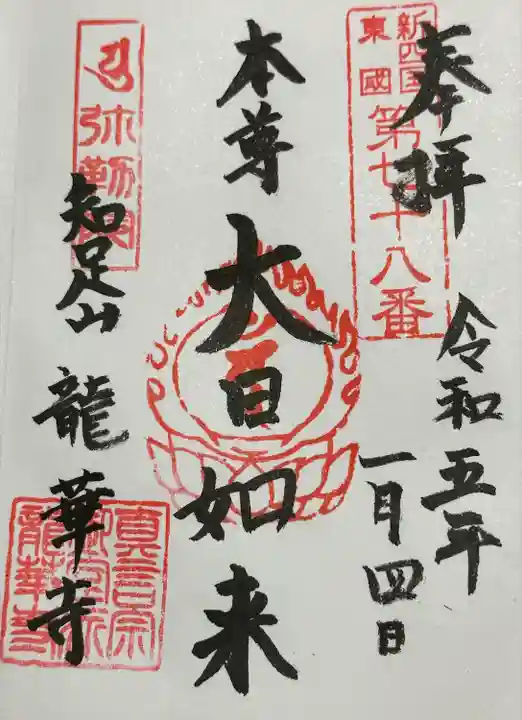 奉拝
新四国
東國
第七十八番
令和五年
一月四日
本尊
大日如来
弥勒
知足山
龍華寺
真言宗
龍華寺